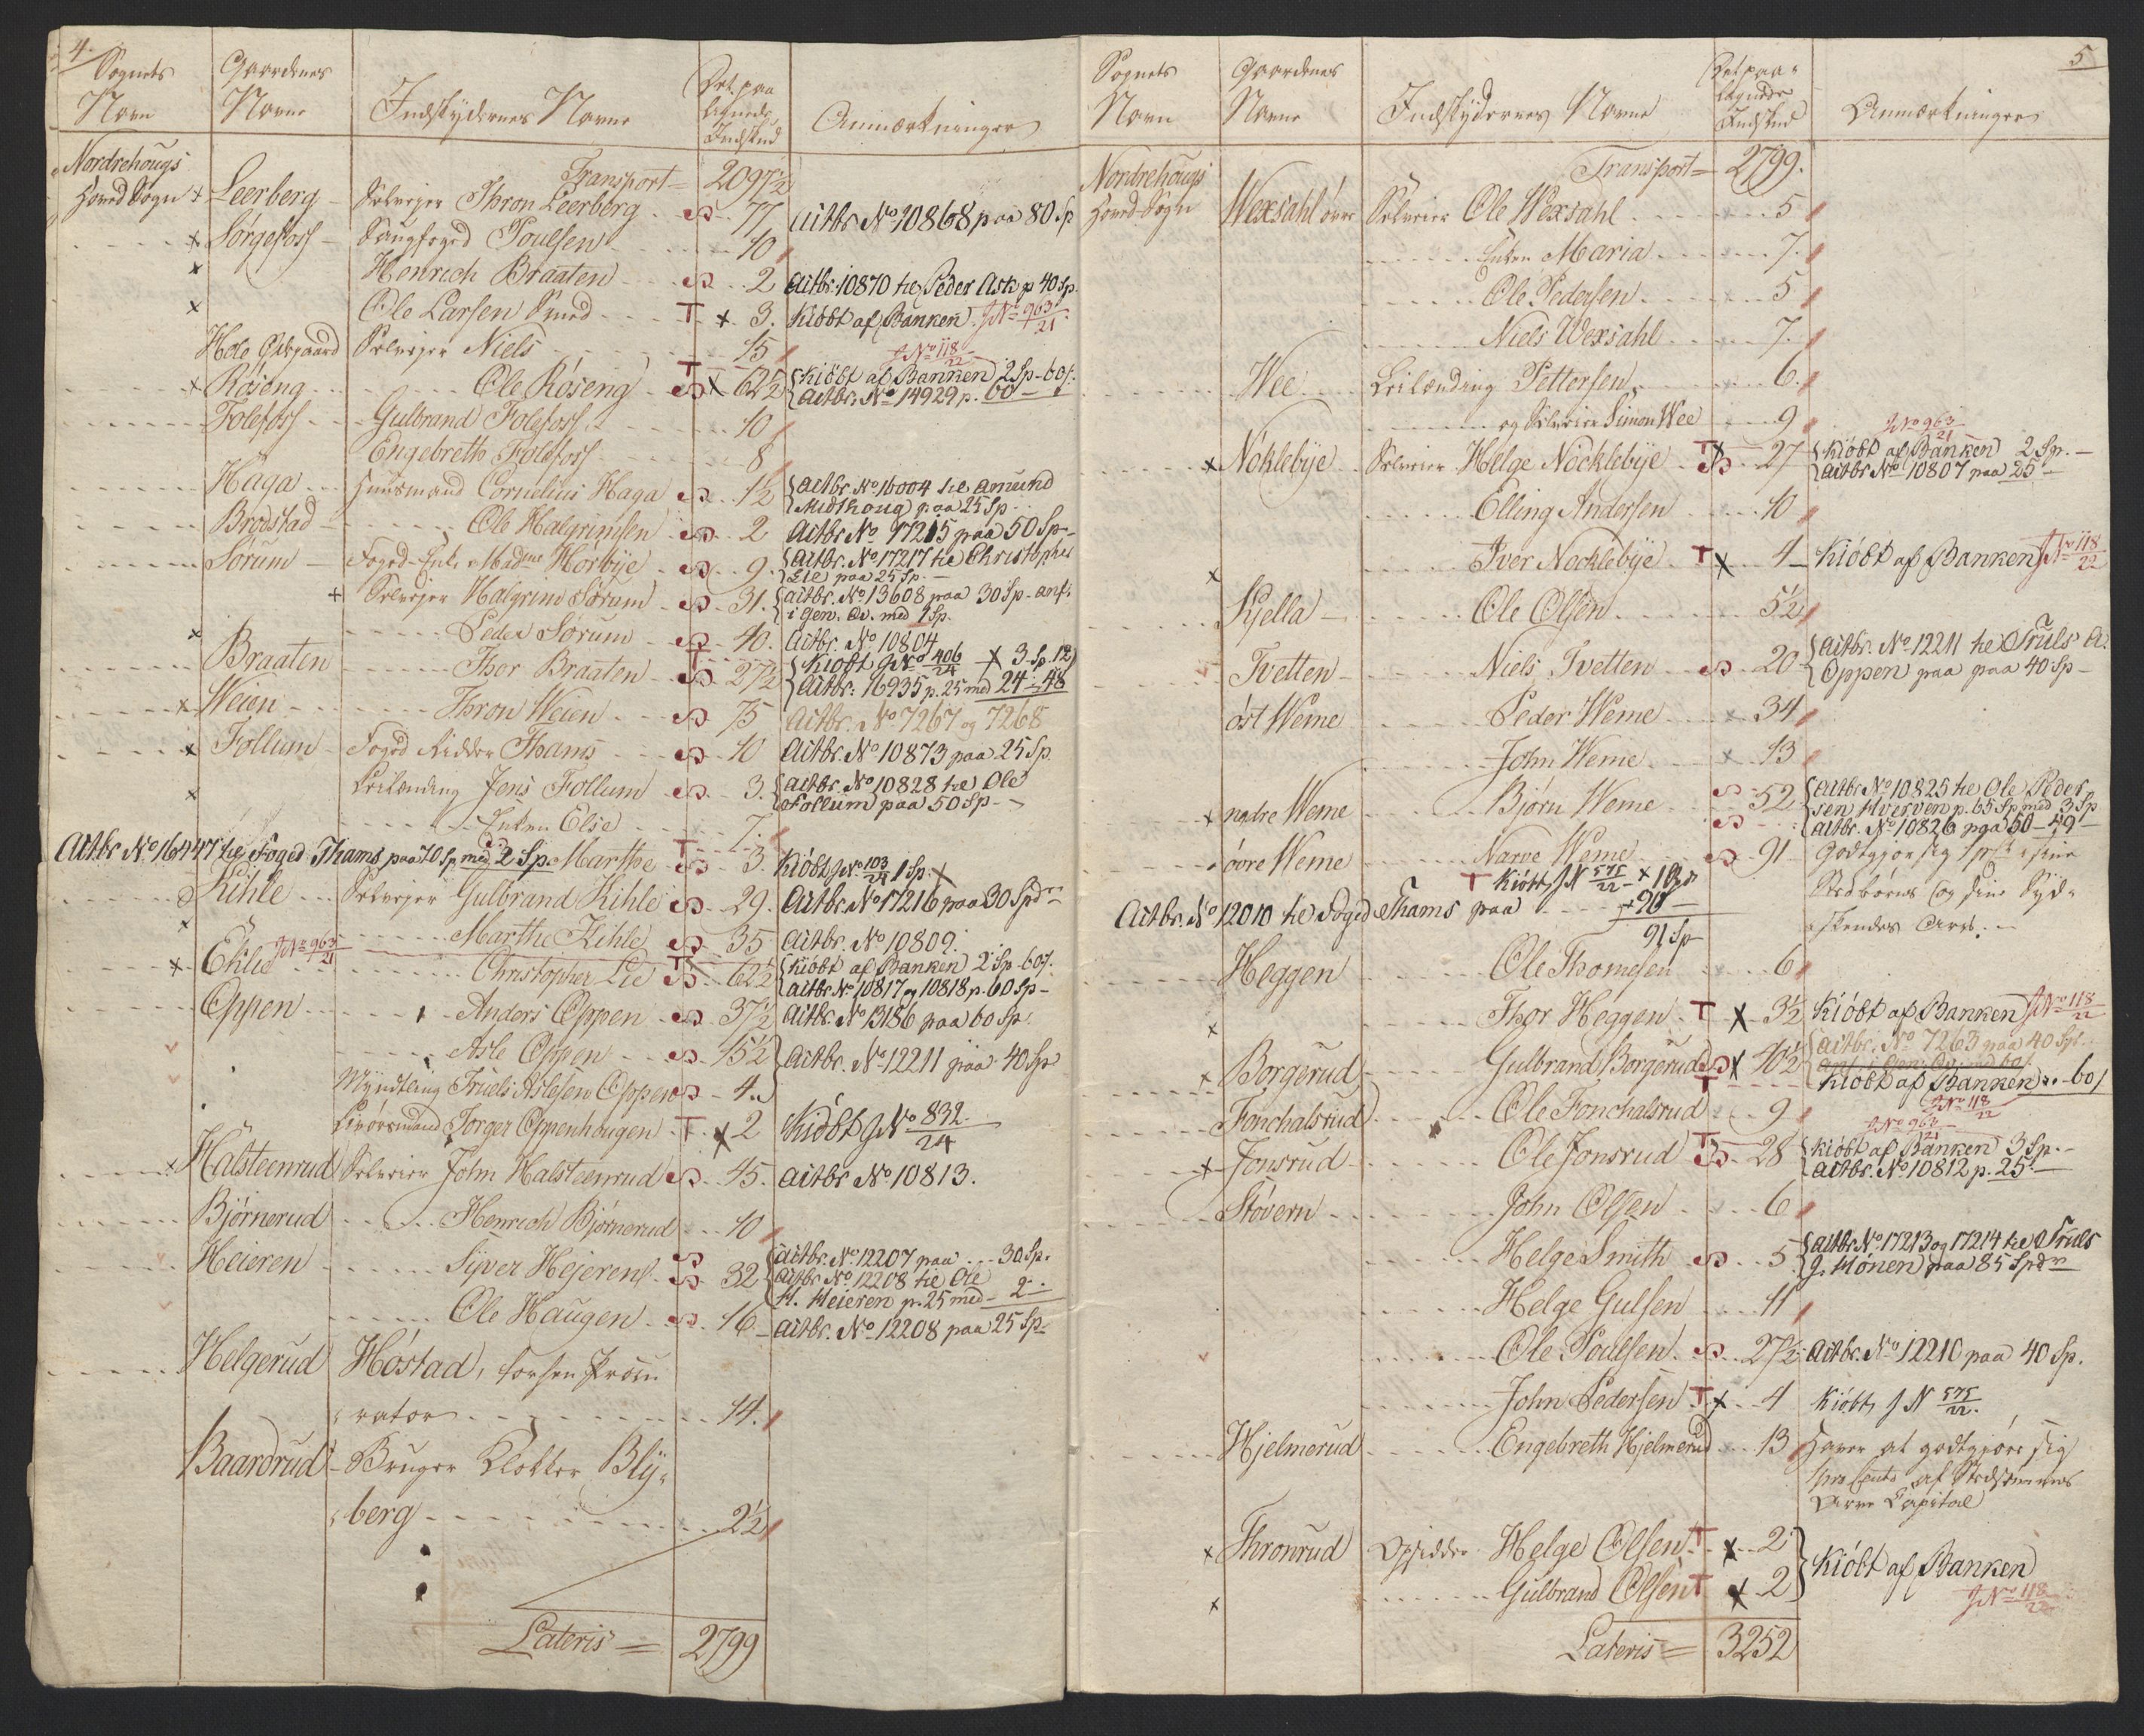 4.
Sognets Navn | Gaardenes Navne | Indskydernes Navne | Det paa lignede Indskud | Anmærkninger
Nordrehougs Hoved Sogn
Transport = 2097½
Leerberg - Selveyer Thron Leerberg S 77 Actbr No 10868 paa 80 Sp
Sørgefoss - Poulsen 10
Henrich Braaten S 2 Actbr. 10870 til Peder Ask p 40 Sp.
Ole Larsen Smed T x 3. Kiøbt af Banken. JNo 963/21
Hole Selveyer Niels 15
JNo 118/22
Røseng Ole Røseng T S x 62½ { Kiøbt af Banken 2 Sp - 60 s.
Actbr. No 14929 p. 60 -
Folefoss Gulbrand Folefoss 10
Engebreth Folefoss 8
Haga Huusmand Cornelius Haga S 1½ { Actbr. No 16004 til Amund
Midthoug paa 25 Sp.
Brøstad Ole Halgrimsen S 2 Actbr No 17215 paa 50 Sp -
Sørum Foged-Enke Madme Hørbÿe S 9. { Actbr. No 17217 til Christopher
Lie paa 25 Sp. -
+ Selveyer Halgrim Sørum S 31. { actbr. No 13608 paa 30 Sp - anf.
i gen. Qv. med 1 Sp.
Peder Sørum S 10. Actbr. No 10804
Braaten Thor Braaten T S 27½ { Kiøbt JNo 406/24 x 3 Sp. 12
Actbr: 16935 p. 25 med 24 - 48
Weien Thron Weien S 75 Actbr. No 7267 og 7268
Follum Foged Ridder Thams S 10 Actbr. No 10873 paa 25 Sp.
Leilænding Jens Follum S 3. { Actbr. No 10828 til Ole
Follum paa 50 Sp -
Enken Else 7.
Actbr No 16447 til Foged Thams paa 70 Sp med 2 Sp. Marthe T S 3 Kiøbt JNo 103/24 1 Sp. x
Kihle Selveyer Gulbrand Kihle S 29. Actbr. No 17216 paa 30 Spdr
Marthe Kihle S 35 Actbr. No 10809.
Eklie JNo 963/21 Christopher Lie T S 62½ { Kiøbt af Banken 2 Sp - 60 s.
Actbr No 10817 og 10818 p. 60 Sp -
Oppen Anders Oppen S 37½ Actbr. No 13186 paa 60 Sp.
Asle Oppen S 15½ } Actbr. No 12211 paa 40 Sp
Myndtling Truels Aslesen Oppen S 4.
Torger Oppenhougen T x 2 Kiøbt JNo 832/24
Halsteenrud Selveier John Halsteenrud S 45. Actbr No 10813.
Bjørnerud Henrich Bjørnerud 10
Heieren Syver Hejeren S S 32 { actbr. No 12207 paa ... 30 Sp.
Actbr No 12208 til Ole
H. Heieren p. 25 med - 2 -
Ole Haugen S 16 - Actbr. No 12208 paa 25 Sp -
Helgerud Høstad,
rator 14.
Baardrud - Bruger Klokker Blÿ-
berg 2½
Lateris = 2799
5
Sognets Navn | Gaardenes Navne | Indskydernes Navne | Det paa lignede Indskud | Anmærkninger
Nordrehougs Hoved-Sogn
Transport = 2799.
Wexsahl øvre Selveier Ole Wexsahl 5
Enken Maria 7.
Ole Pedersen 5
Niels Wexsahl 7.
Wee Leilænding Pettersen 6.
og Selveier Simon Wee 9
JNo 963/21
Nøklebÿe Selveier Helge Nøcklebÿe T S 27 { Kiøbt af Banken 2 Sp. -
actbr. No 10807 paa 25 -
Elling Andersen 10
Iver Nocklebÿe T x 4 - Kiøbt af Banken JNo 118/22
Kjella Ole Olsen 5½
Tvetten Niels Tvetten S 20 { Actbr. No 12211 til Truls A.
Oppen paa paa 40 Sp -
øst Weme Peder Weme 34
John Weme 13
nedre Weme Bjørn Weme S S 52 { Actbr No 10825 til Ole Peder
sen Hverven p. 65 Sp med 3 Sp
actbr. No 10826 paa 50 - 49 -
øvre Weme Narve Weme S 91 Godtgjør sig
T Kiøbt JN 575/22 x 1
Actbr. No 12010 til Foged Thams paa + 90 -
91 Sp
Heggen Ole Thomesen 6
Thor Heggen T x 3½ Kiøbt af Banken JNo 118/22
Borgerud Gulbrand Borgerud S T x 10½ { actbr. No 7263 paa 40 Sp.
Kiøbt af Banken - 60 s
JNo 118/22
Fonchalsrud Ole Fonchalsrud 9
JNo 963/21
Jonsrud Ole Jonsrud T S 28 { Kiøbt af Banken 3 Sp. -
actbr. No 10812 p. 25 -
Støvern John Olsen 6
Helge Smith S 5 { Actbr No 17213 og 17214 til Truls
J. Hønen paa 85 Spdr
Helge Gulsen 11
Ole Poulsen S 27½ Actbr. No 12210 paa 40 Sp.
John Pedersen T x 4 Kiøbt, J N 575/22.
Hjelmerud Engebreth Hjelmerud 13 Haver at godtgjøre sig
af
Capital
Thronrud Opsidder Helge Olsen T x 2 } Kiøbt af Banken
Gulbrand Olsen T x 2
JNo 118/22
Lateris = 3252